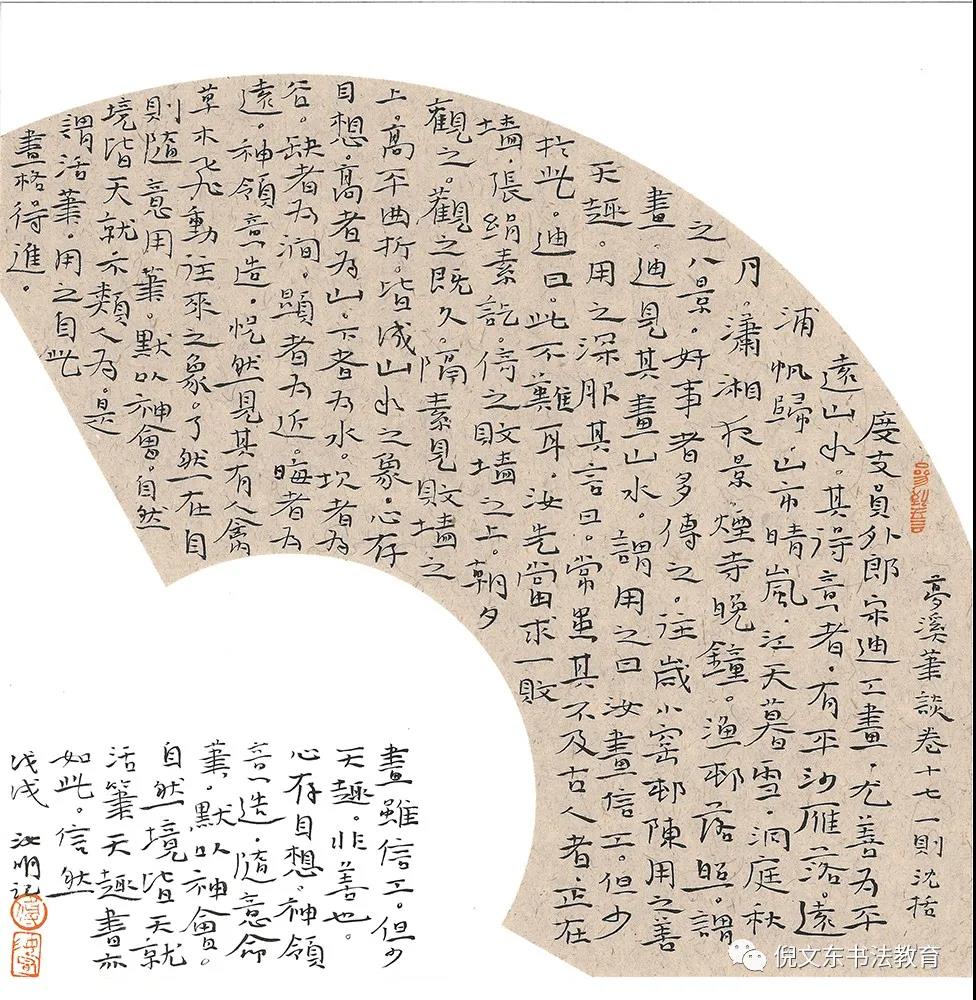 夢溪筆談卷十七一則沈括
度支員外郎宋迪工畫。尤善為平
遠山水。其得意者。有平沙雁落。遠
浦帆歸。山市晴嵐。江天暮雪。洞庭秋
月。瀟湘夜景。煙寺晚鐘。漁邨落照。謂
之八景。好事者多傳之。往歲小窑邨陳用之善
畫。迪見其畫山水。謂用之曰汝畫信工。但少
天趣。用之深服其言曰。常患其不及古人者。正在
於此。迪曰。此不難耳。汝先當求一敗
墻。張絹素訖。倚之敗墻之上。朝夕
觀之。觀之既久。隔素見敗墻之
上。高平曲折。皆成山水之象。心存
目想。高者為山。下者為水。坎者為
谷。缺者為澗。顯者為近。晦者為
遠。神領意造。怳然見其有人禽
草木飛動往來之象。了然在目
則隨意用筆。默以神會。自然
境皆天就不類人為。是
謂活筆。用之自此
畫格得進。
畫雖信工。但少
天趣。非善也。
心存目想。神領
意造。隨意命
筆。默以神會。
自然境皆天就
活筆天趣書亦
如此。信然
戊戌 汝明記
倪文东书法教育